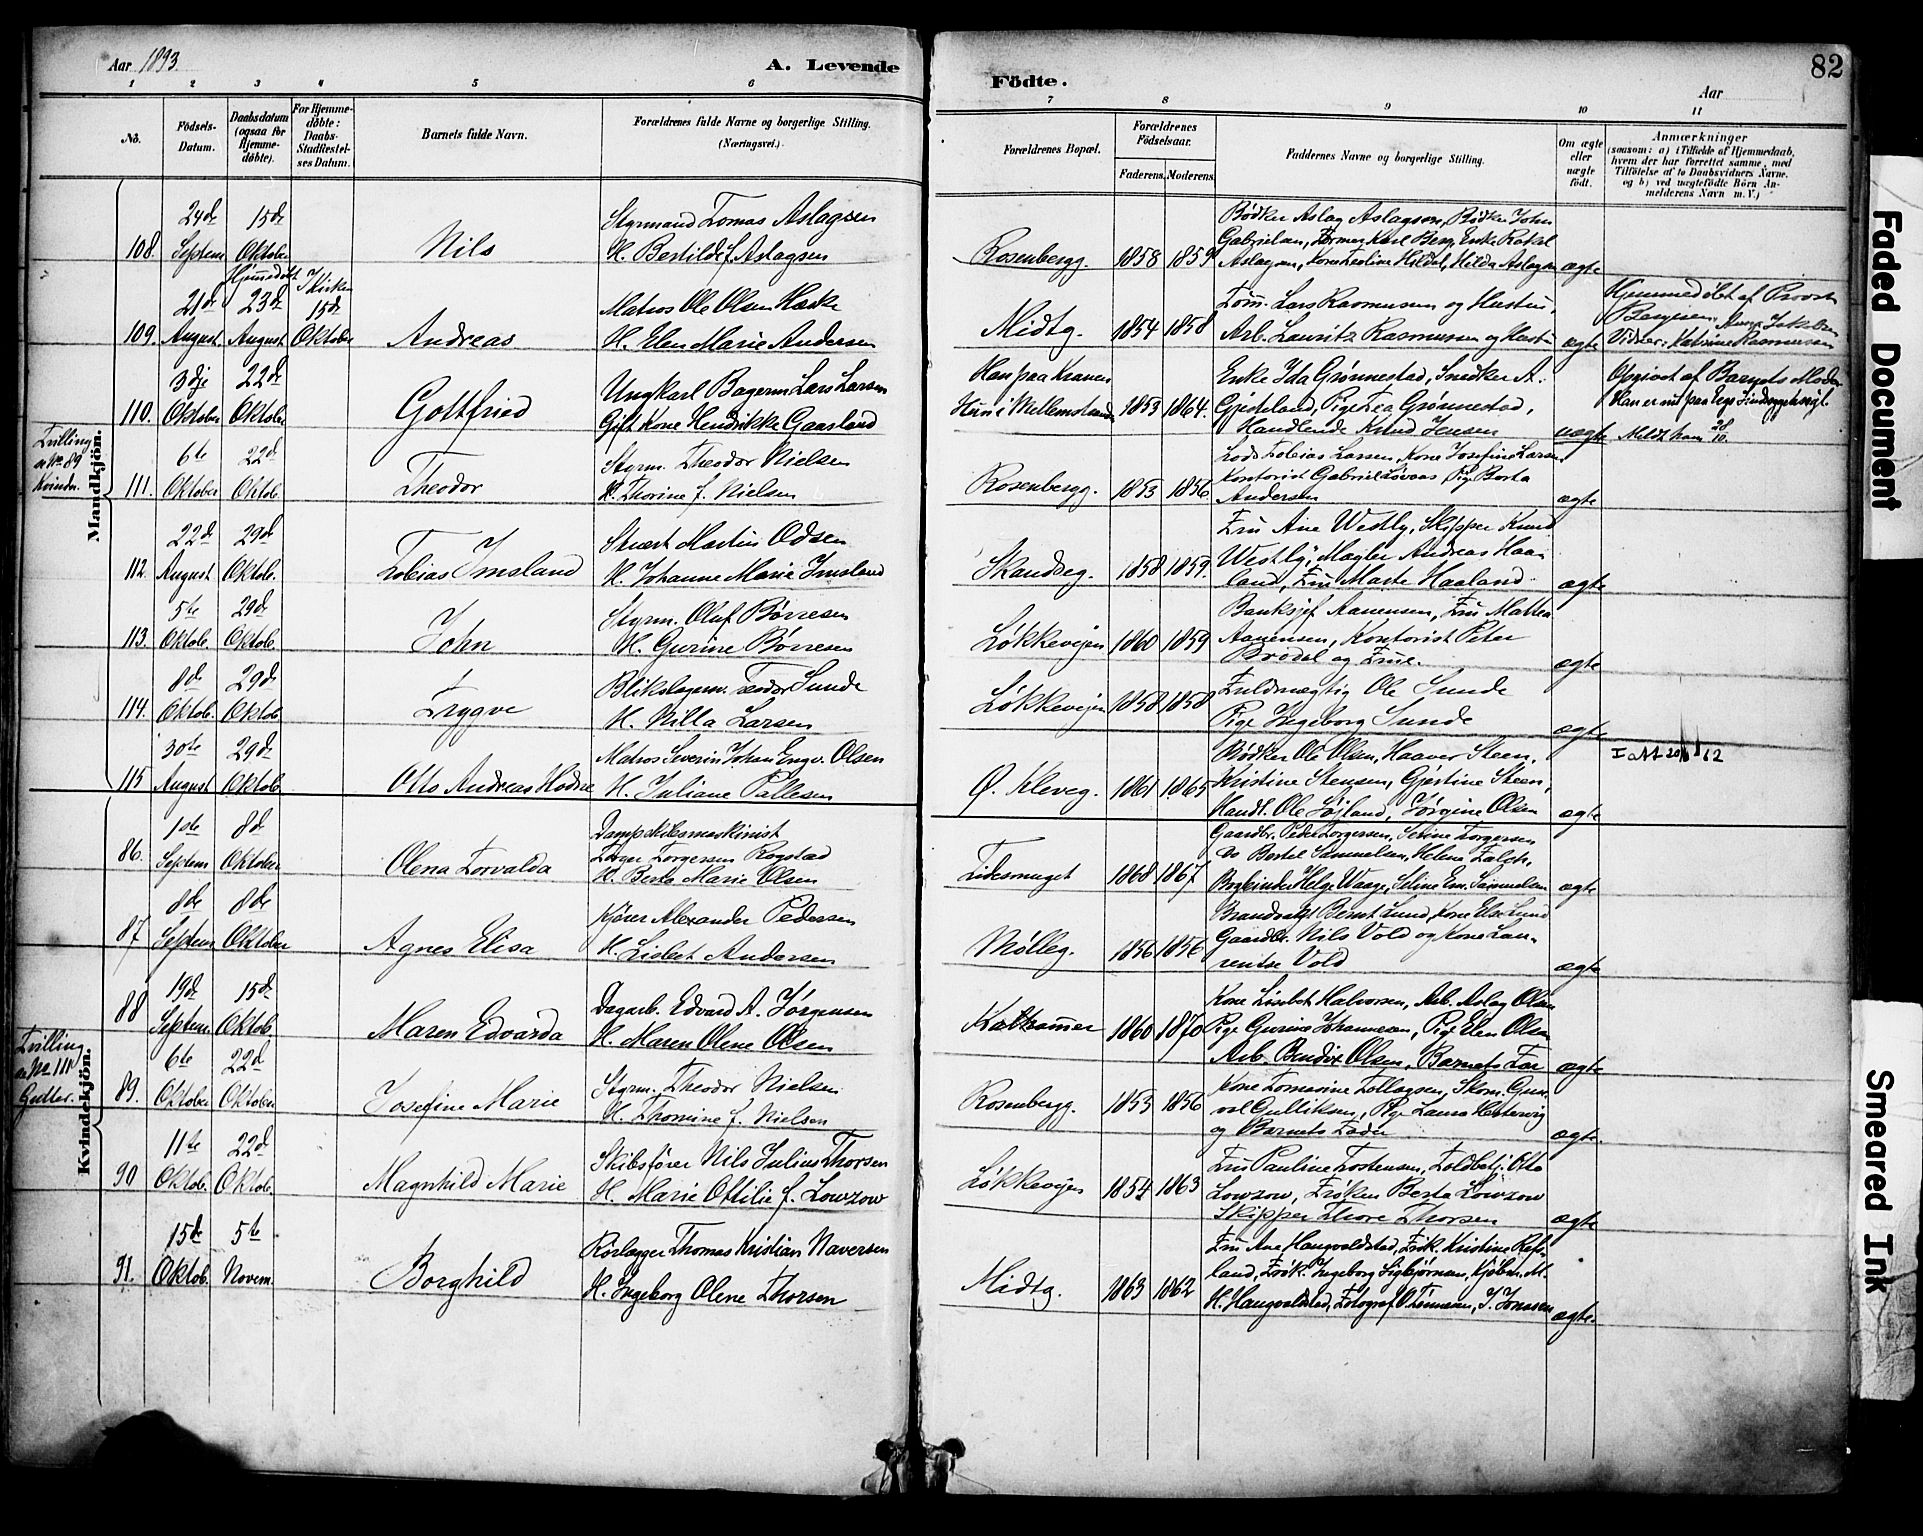 Aar 1893.
A. Levende
Födte.
82
Aar
1 2 3 4 5 6 7 8 9 10 11
No.
Födsels-Datum.
Daabsdatum (ogsaa for Hjemmedøbte).
For Hjemmedøbte: Daabs-Stadfæstelses Datum.
Barnets fulde Navn.
Forældrenes fulde Navne og borgerlige Stilling.
(Næringsvei.)
Forældrenes Bopæl.
Forældrenes Födselsaar.
Faderens. Moderens.
Faddernes Navne og borgerlige Stilling.
Om ægte eller uægte födt.
Anmærkninger
(saasom: a) i Tilfælde af Hjemmedaab, hvem der har forrettet samme, med Tilföielse af to Daabsvidners Navne. og b) ved uægtefödte Börn Anmelderens Navn m. V.)
Mandkjön.
108. 24de Septem 15de Oktober
Nils
Styrmand Tomas Aslagsen
H. Bertilde f. Aslagsen
Rosenbergg. 1858 1859
Bødker Aslag Aslagsen, Bødker John
Gabrielsen, Former Karl Berg, Enke Rakel
Aslagsen, Kone Hilda Aslagsen
ægte
109. 21de August Hjemmedøbt 23de August I Kirken 15de Oktober
Andreas
Matros Ole Olsen
H. Elen Marie Andersen
Midtg. 1854 1858
Tøm. Lars Rasmussen og Hustru,
Arb. Lauritz Rasmussen og Hustru
ægte
Hjemmedøbt af Provst
Vidner: Katrine Rasmussen
110. 3dje Oktober 22de Oktober
Gottfried
Ungkarl Bagerm. Lars Larsen
Gift Kone Hendrikke Gaasland
Han paa Kranen
Hun i 1853 1864.
Enke Ida Grønnestad, Snedker A.
Gjedeland, Pige Tea Grønnestad,
Handlende Knud Jensen
uægte
Opgivet af Barnets Moder
28/10.
Tvilling
m No 89
Kvindek.
111. 6te Oktober 22de Oktob.
Theodor
Styrm. Theodor Nielsen
H. Thorine f. Nielsen
Rosenbergg. 1853 1856.
Lods Tobias Larsen, Kone Josefine Larsen,
Kontorist Gabriel Løvaas, Pige Berta
Andersen
ægte
112. 22de August 29de Oktob.
Tobias Imsland
Stuert Martin Odsen
H. Johanne Marie Imsland
Skandseg. 1858 1859.
Fru Ane Westly, Skipper Knud
Westly, Mægler Andreas Haa-
land, Fru Marte Haaland.
ægte
113. 5te Oktob. 29de Oktob.
John
Styrm. Oluf Børresen
H. Gurine Børresen
Løkkevejen 1860 1859
Banksjef Aanensen, Fru Mattea
Aanensen, Kontorist Peter
Brodal og Frue.
ægte
114. 8de Oktob. 29de Oktob.
Trygve
Blikslagerm. Teodor Sunde
H. Nilla Larsen
Løkkevejen 1858 1858
Fuldmægtig Ole Sunde
Pige Ingeborg Sunde
ægte
115 30te August 29de Oktob.
Otto Andreas
Matros Severin Johan Engv. Olsen
H. Juliane Pallesen
Ø. Kleveg. 1861 1865
Bødker Ole Olsen, Haaver Steen,
Kristine Stensen, Gjertine Steen,
Handl. Ole Søjland, Jørgine Olsen
ægte
Kvindekjön.
86. 1ste Septem 8de Oktober
Olena Torvalda
Dampskibsmaskinist
Torger Torgersen Rogstad
H. Berta Marie Olsen
1868 1867
Gaardbr. Peder Torgersen, Serine Torgersen
Do Bertel Samuelsen, Helene Falch,
Bogbinder Helge Waage, Seline Em. Samuelsen
ægte
87 8de Septem 8de Oktober
Agnes Elisa
Kjører Alexander Pedersen
H. Lisbet Andersen
Mølleg. 1856 1856
Brandvagt Bernt Lund, Kone Else Lund
Gaardbr. Nils Vold og Kone Lau-
rentse Vold
ægte
88 19de Septem. 15de Oktob.
Maren Edvarda
Dagarb. Edvard A. Jørgensen
H. Maren Olene Olsen
Kalhammer 1860 1870
Kone Lisebet Halvorsen, Arb. Aslag Olsen
Pige Gurine Johannesen, Pige Elen Olsen
Arb. Bendix Olsen, Barnets Far
ægte
Tvilling
m No 111
Gutter.
89. 6te Oktober 22de Oktober
Josefine Marie
Styrm. Theodor Nielsen
H. Thomine f. Nielsen
Rosenbergg. 1853 1856
Kone Tomasine Tollagsen, Skom. Gun-
val Gulliksen, Pige Laura
og Barnets Fader
ægte.
90 11te Oktob. 22de Oktob.
Magnhild Marie
Skibsfører Nils Julius Thorsen
H. Marie Ottilie f. Lowzow
Løkkevejen 1854 1863
Fru Pauline Tostensen, Toldbetj. Otto
Lowzow, Frøken Berta Lowzow
Skipper Thore Thorsen
ægte
91. 15de Oktob. 5te Novem.
Borghild
Rørlægger Thomas Kristian Naversen
H. Ingeborg Olene Thorsen
Midtg. 1863 1862
Fru Ane Haugvaldstad, Frøk. Kristine Refs-
land, Frøk. Ingeborg Sigbjørnsen, Kjøbm. M.
H. Haugvaldstad, Fotograf J. Jonassen
ægte.
Faded Document
Smeared Ink